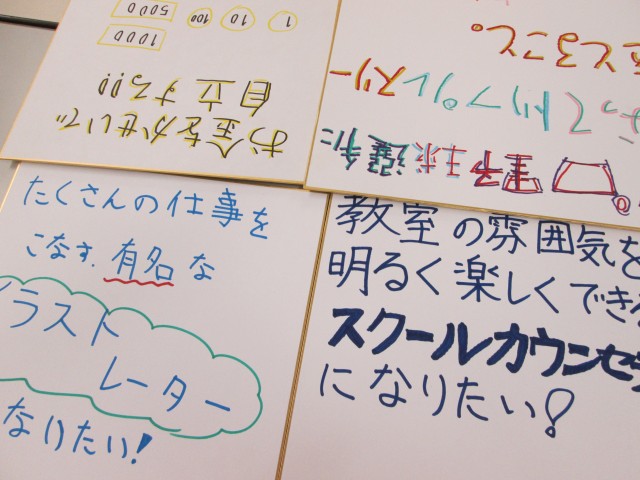 お金をかせいで
自立する!!
1000
5000
100
10
1
プロ野球選手に
ってトリプルスリー
をとること。
たくさんの仕事を
こなす、有名な
イラスト
レーター
なりたい!
教室の雰囲気を
明るく楽しくできる
スクールカウンセ
になりたい!